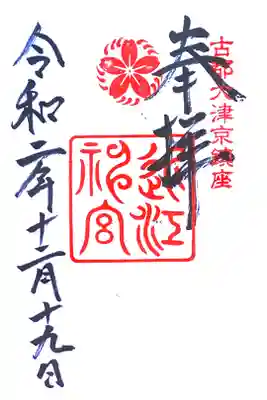 古都大津京鎮座
奉拝
近江神宮
令和二年十二月十九日